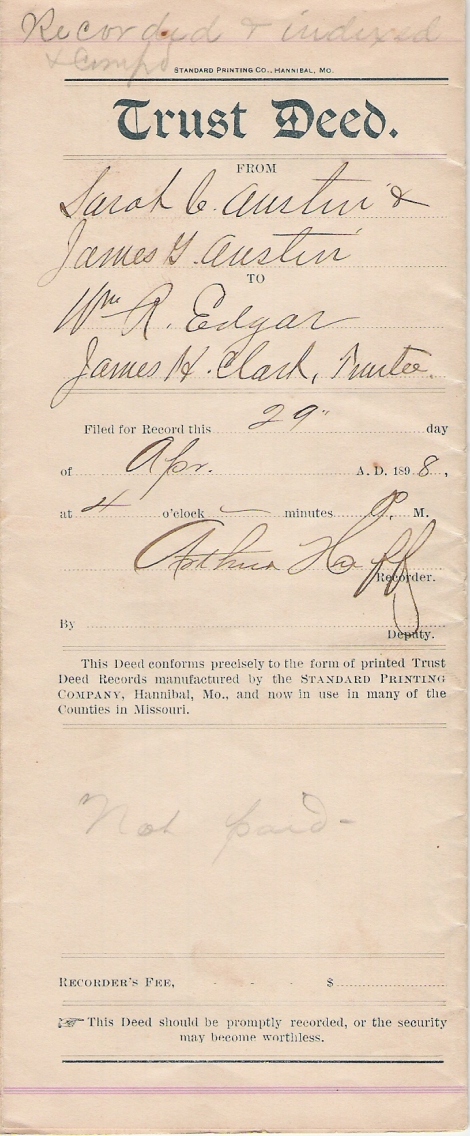 Recorded & indexed
& Comp'd
STANDARD PRINTING CO., HANNIBAL, MO.
Trust Deed.
FROM
Sarah C. Austin &
James G. Austin
TO
Wm R. Edgar
James H. Clark, Trustee.
Filed for Record this 29" day
of Apr. A. D. 1898,
at 4 o'clock — minutes P. M.
Arthur Huff
Recorder.
By
Deputy.
This Deed conforms precisely to the form of printed Trust
Deed Records manufactured by the STANDARD PRINTING
COMPANY, Hannibal, Mo., and now in use in many of the
Counties in Missouri.
Not paid-
RECORDER'S FEE, - - - $
☞ This Deed should be promptly recorded, or the security
may become worthless.